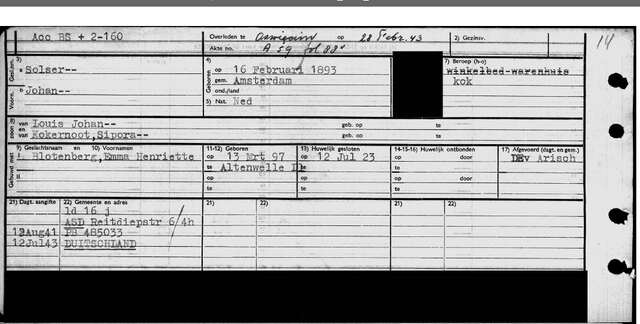 Acc BS + 2-160
Overleden te op 28 Febr. 43
Akte no. A 59 fol 88v
2) Gezinsv.
14
Geslsn. 3) Solser--
Voorn. Johan--
Geboren 4) op 16 Februari 1893
gem. Amsterdam
ond./land
5) Nat. Ned
7) Beroep (h-o)
winkelbed-warenhuis
kok
zoon 8) van Louis Johan-- geb. op te
en van Kokernoot,Sipora-- geb. op te
9) Geslachtsnaam en 10) Voornamen 11-12) Geboren 13) Huwelijk gesloten 14-15-16) Huwelijk ontbonden 17) Afgevoerd (dagt. en gem.)
Gehuwd met I. Blotenberg,Emma Henriette op 13 Mrt 97 op 12 Jul 23 op door DEv Arisch
te Altenwelle Dl te te
II op op op door
te te te
21) Dagt. aangifte 22) Gemeente en adres 21) 22) 21) 22)
ld 16 j
ASD Reitdiepstr 6/4h
12Aug41 PB 485033
12Jul43 DUITSCHLAND